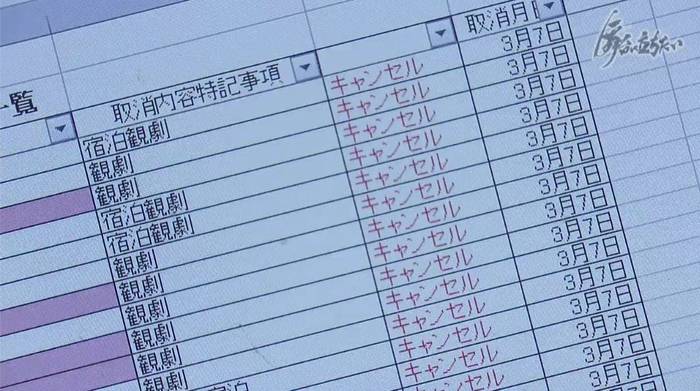 一覧
取消内容特記事項
取消月日
宿泊観劇 キャンセル 3月7日
観劇 キャンセル 3月7日
観劇 キャンセル 3月7日
宿泊観劇 キャンセル 3月7日
宿泊観劇 キャンセル 3月7日
観劇 キャンセル 3月7日
観劇 キャンセル 3月7日
観劇 キャンセル 3月7日
観劇 キャンセル 3月7日
観劇 キャンセル 3月7日
観劇 キャンセル 3月7日
宿泊 キャンセル 3月7日